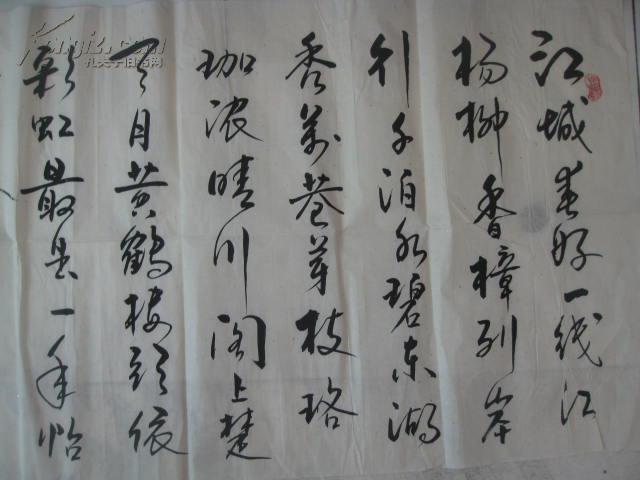 江城春好一线江
杨柳香樟列岸
引千泊水碧东湖
秀万巷芽枝珞
珈浓晴川阁上楚
天月黄鹤楼头依
彩虹最是一年怡
Kongfz.com
孔夫子旧书网